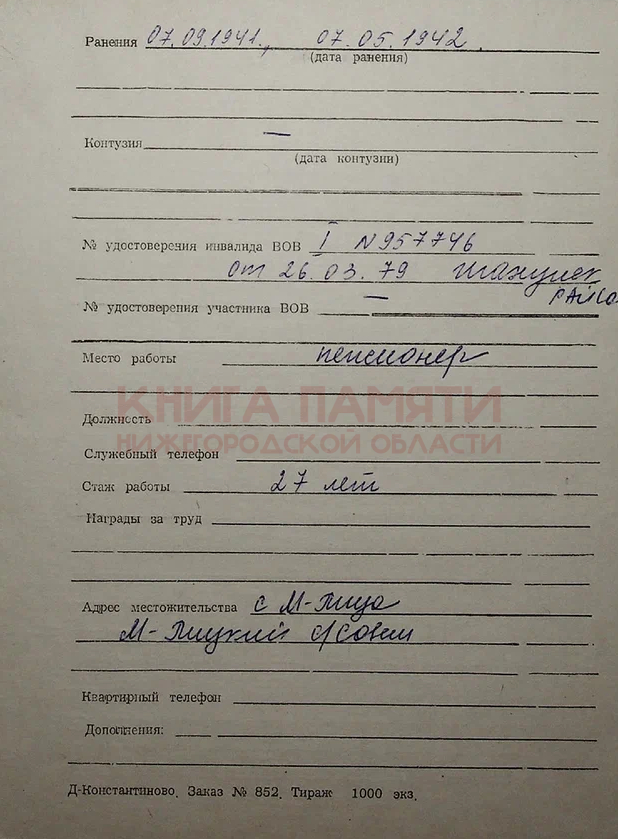 Ранения 07.09.1941., 07.05.1942.
(дата ранения)
Контузия —
(дата контузии)
№ удостоверения инвалида ВОВ I N 957746
от 26.03.79
№ удостоверения участника ВОВ —
Место работы пенсионер
КНИГА ПАМЯТИ
Должность
НИЖЕГОРОДСКОЙ ОБЛАСТИ
Служебный телефон
Стаж работы 27 лет
Награды за труд
Адрес местожительства с М-Пица
М-Пицкий с/Совет
Квартирный телефон
Дополнения:
Д-Константиново. Заказ № 852. Тираж 1000 экз.